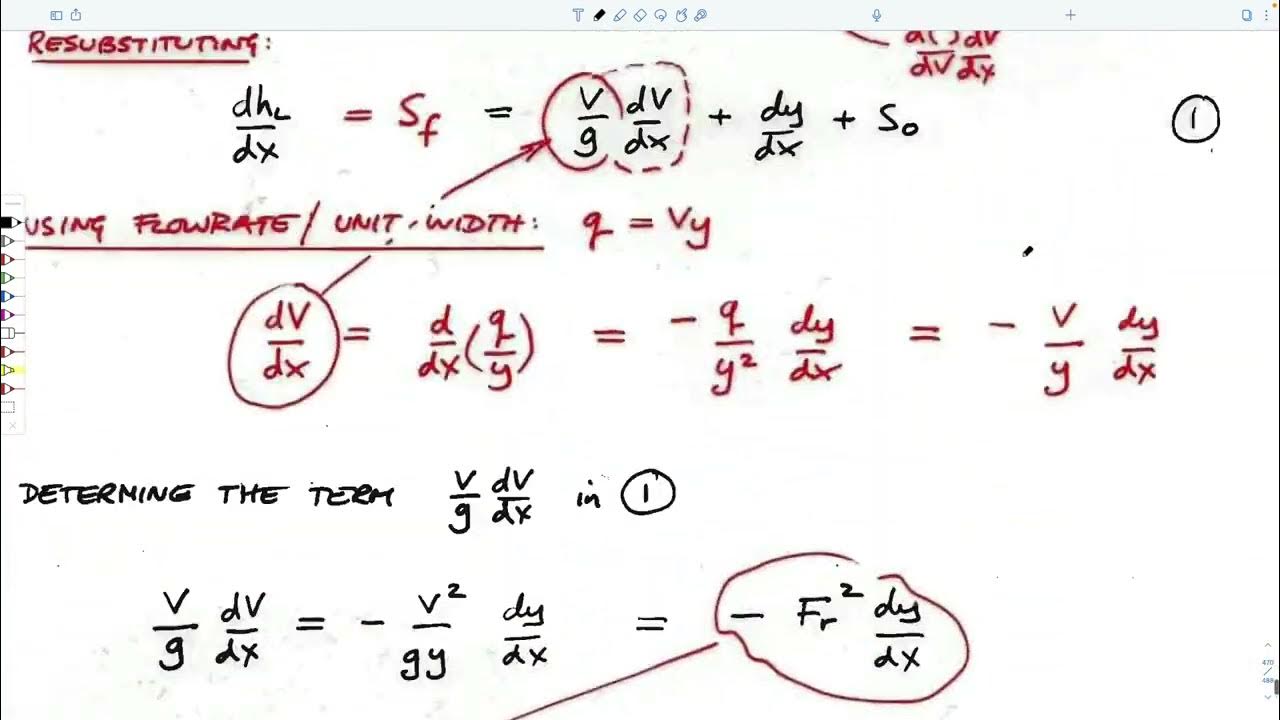 RESUBSTITUTING:
d( ) dV
dV dx
dhL/dx = Sf = V/g dV/dx + dy/dx + So ①
USING FLOWRATE / UNIT-WIDTH: q = Vy
dV/dx = d/dx (q/y) = - q/y² dy/dx = - V/y dy/dx
DETERMINING THE TERM V/g dV/dx in ①
V/g dV/dx = - V²/gy dy/dx = - Fr² dy/dx
470
/
488